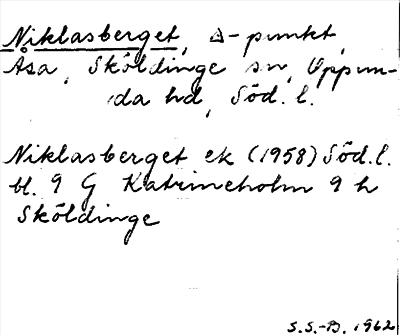 Niklasberget, Δ-punkt,
Åsa, Sköldinge sn, Oppun-
da hd, Söd. l.
Niklasberget ek (1958) Söd. l.
bl. 9 G Katrineholm 9 h
Sköldinge
S.S.-B. 1962